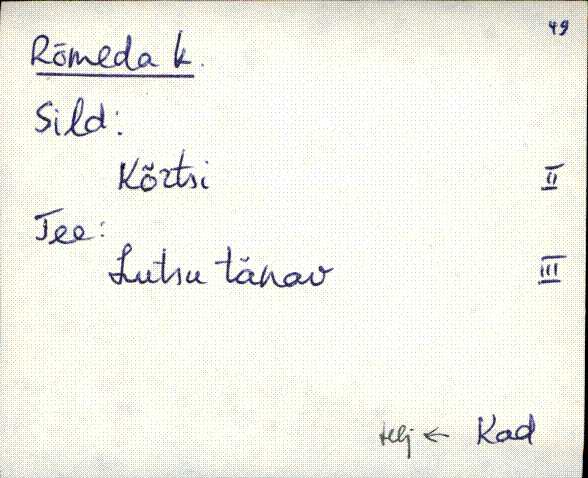 49
Rõmeda k.
Sild:
Kõrtsi II
Tee:
Lutsu tänav III
← Kad